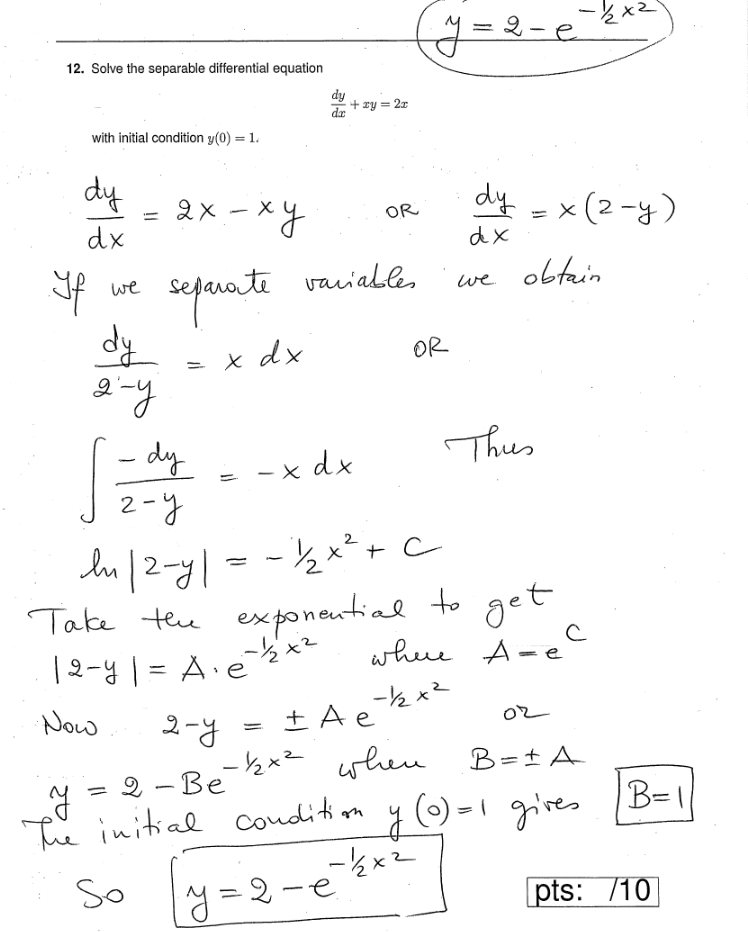 y = 2 - e^{-1/2 x^2}
12. Solve the separable differential equation
dy/dx + xy = 2x
with initial condition y(0) = 1.
dy/dx = 2x - xy OR dy/dx = x(2-y)
If we separate variables we obtain
dy/(2-y) = x dx OR
∫ -dy/(2-y) = -x dx Thus
ln|2-y| = -1/2 x^2 + C
Take the exponential to get
|2-y| = A·e^{-1/2 x^2} where A = e^C
Now 2-y = ±A e^{-1/2 x^2} or
y = 2 - Be^{-1/2 x^2} when B = ±A
The initial condition y(0)=1 gives B=1
So y = 2 - e^{-1/2 x^2}
pts: /10